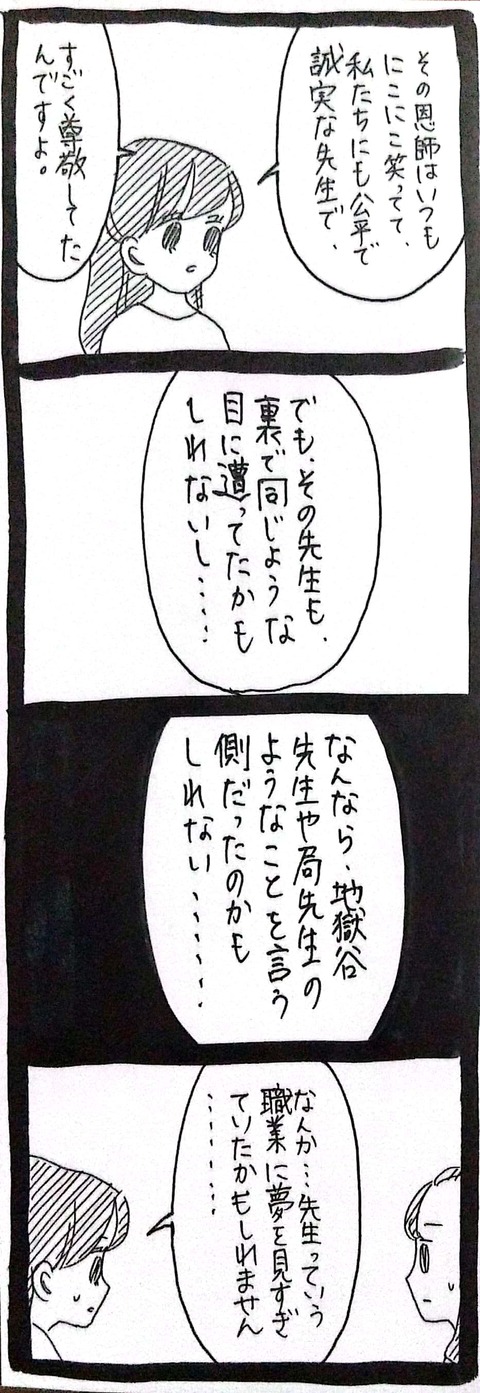 その恩師はいつも
にこにこ笑ってて、
私たちにも公平で
誠実な先生で、
すごく尊敬してた
んですよ。
でも、その先生も、
裏で同じような
目に遭ってたかも
しれないし・・・・・
なんなら、地獄谷
先生や局先生の
ようなことを言う
側だったのかも
しれない・・・・・・・
なんか・・・先生っていう
職業に夢を見すぎ
ていたかもしれません
・・・・・・・・